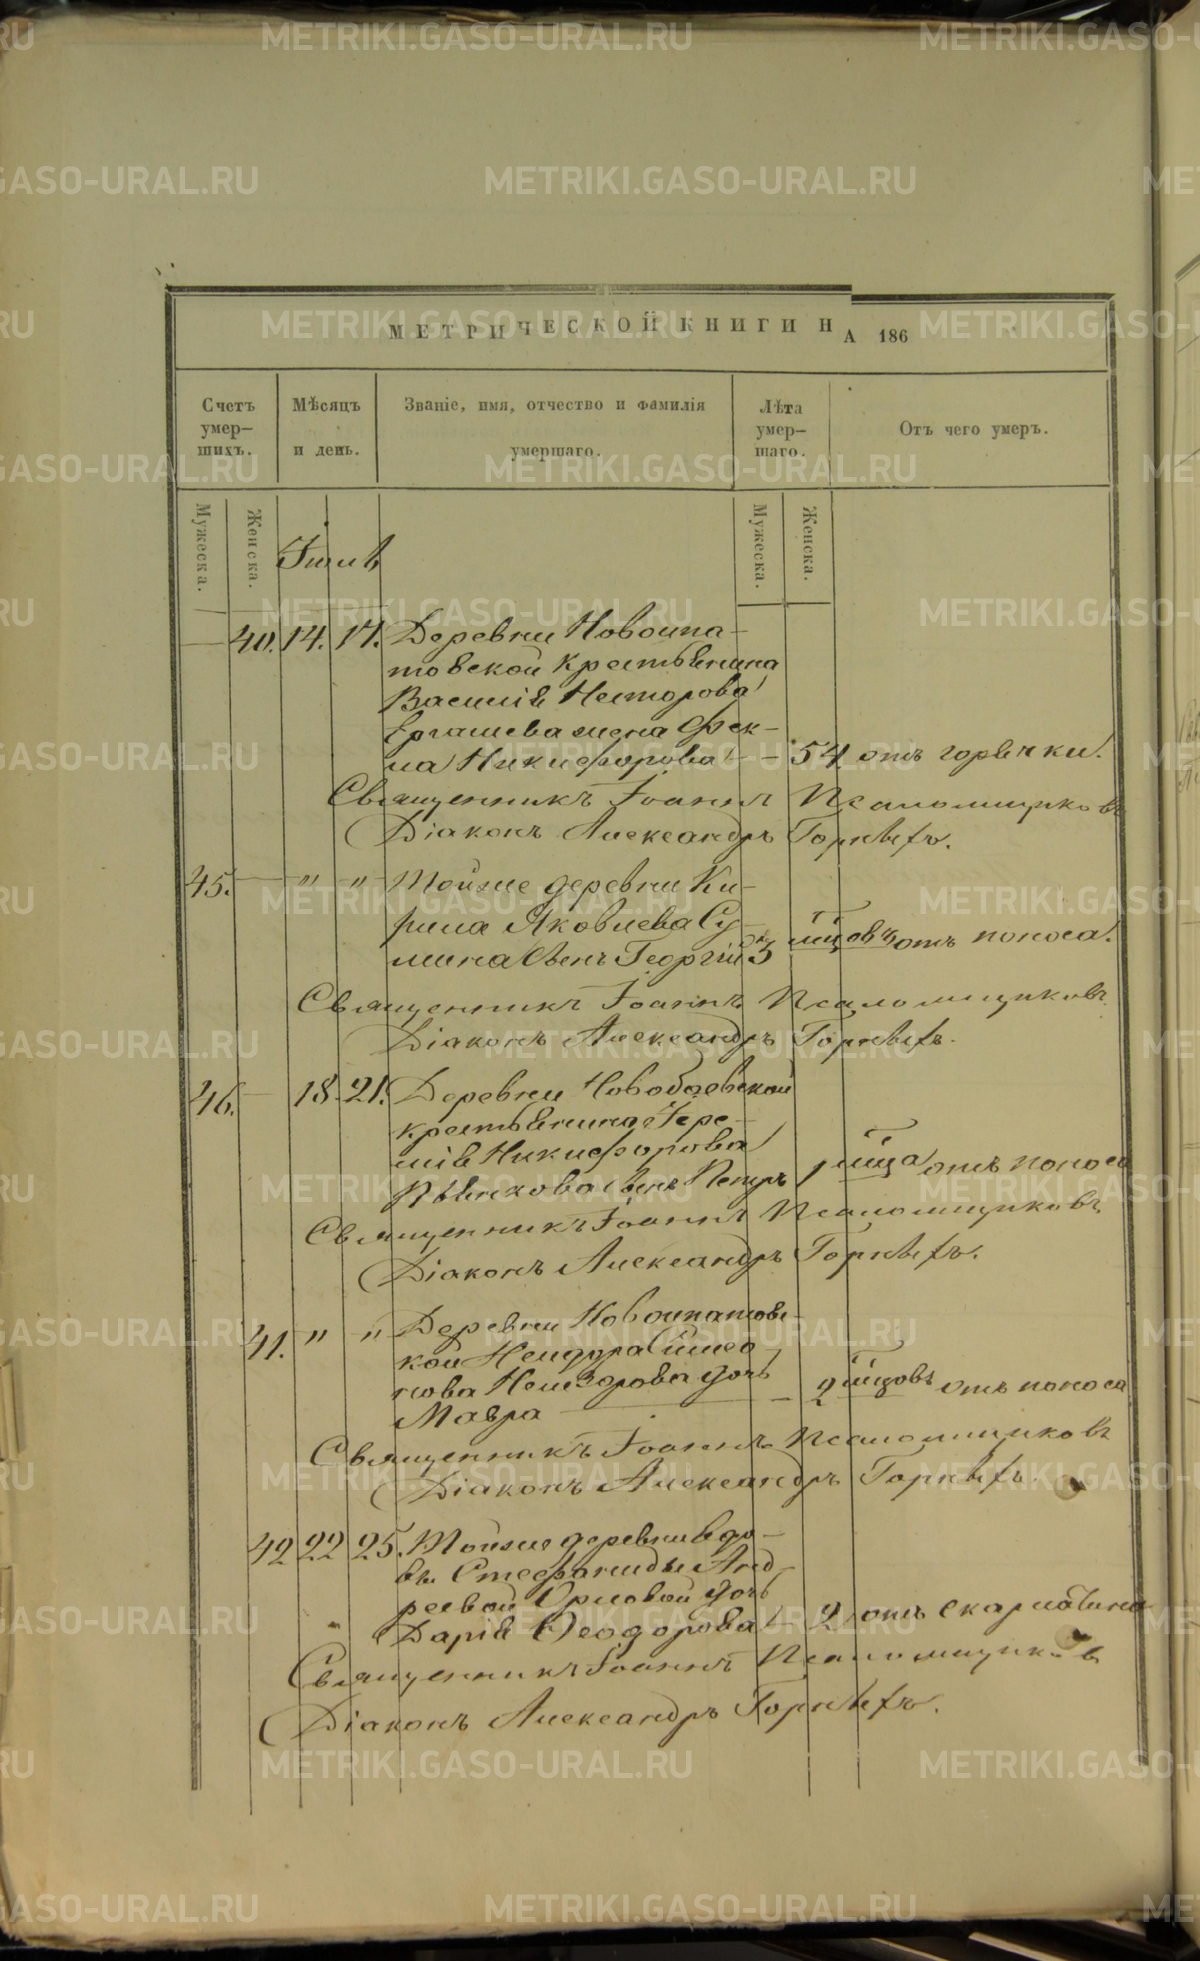 МЕТРИЧЕСКОЙ КНИГИ НА 186
Счетъ умер-шихъ.
Мѣсяцъ и день.
Званіе, имя, отчество и фамилія умершаго.
Лѣта умер-шаго.
Отъ чего умеръ.
Мужеска.
Женска.
Мужеска.
Женска.
40. 14. 17. Деревни Новоипа-
товской крестьянина
Василія Несторова
жена Фек-
ла Никифорова 54 отъ горячки.
Священникъ Іоаннъ Псаломщиковъ
Діаконъ Александръ
45. " " Тойже деревни Ки-
рила Яковлева Су-
мина сынъ Георгій 3 мцовъ отъ поноса.
Священникъ Іоаннъ Псаломщиковъ
Діаконъ Александръ
46. 18. 21. Деревни
крестьянина Іере-
міи Никифорова
сынъ Петръ 1 мца отъ поноса
Священникъ Іоаннъ Псаломщиковъ
Діаконъ Александръ
41. " " Деревни Новоипатовс-
кой Симео-
нова дочь
Мавра 2 мцовъ отъ поноса
Священникъ Іоаннъ Псаломщиковъ
Діаконъ Александръ
42 22 25. Тойже деревни вдо-
вы Стефаниды Анд-
реевой Орловой дочь
Дарія Ѳеодорова 2 отъ скарлатины
Священникъ Іоаннъ Псаломщиковъ
Діаконъ Александръ
METRIKI.GASO-URAL.RU